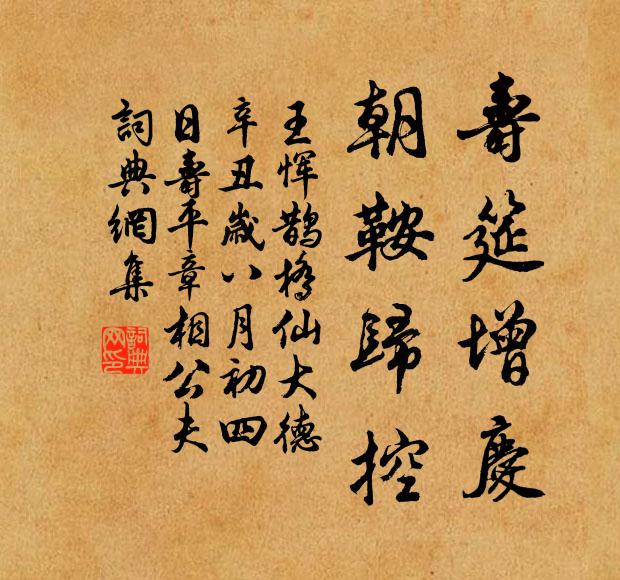 壽筵增慶
朝鞍歸控
王恽鹊橋仙大德
辛丑歲八月初四
日壽平章相公夫
詞典網集
詞典
网印